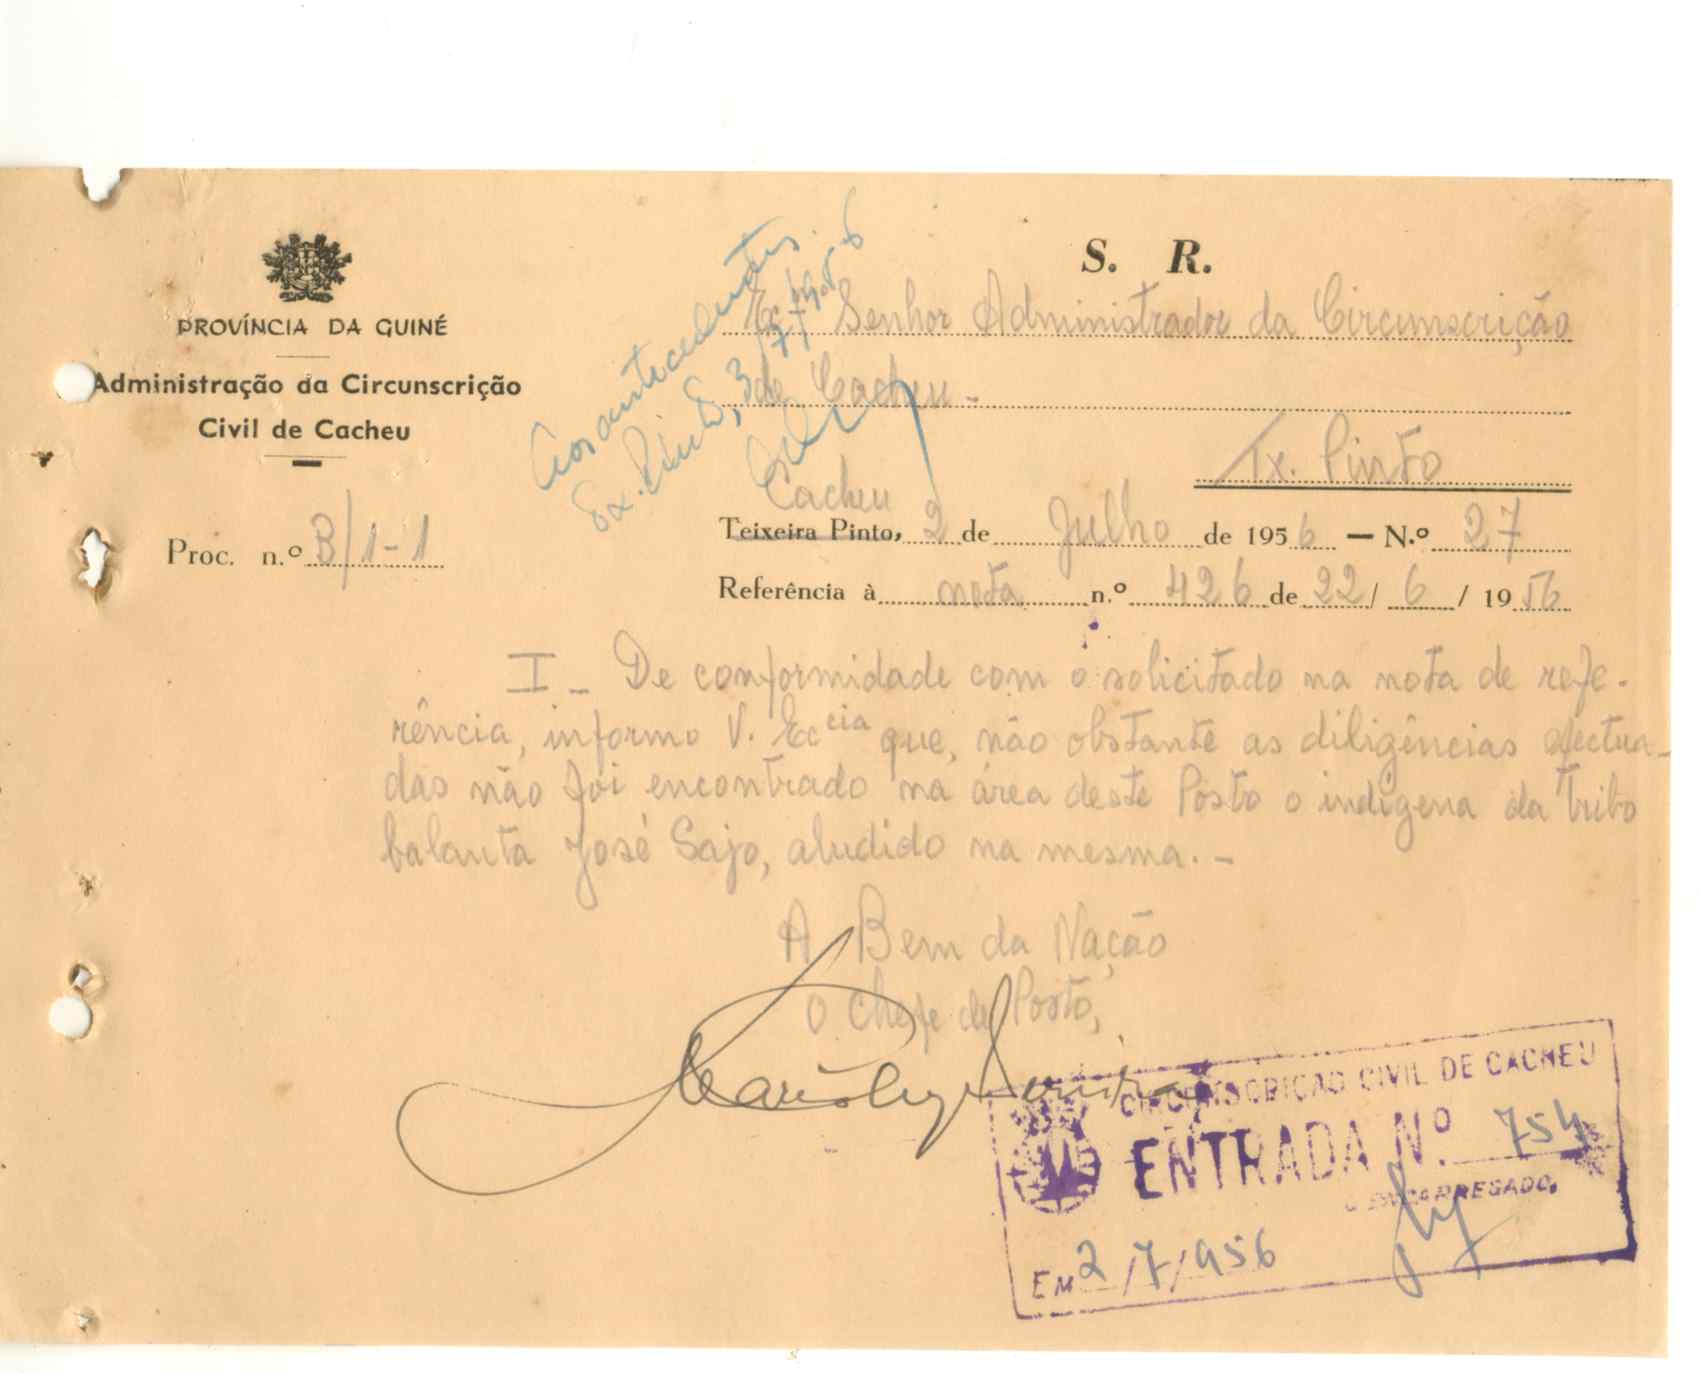 PROVÍNCIA DA GUINÉ
Administração da Circunscrição
Civil de Cacheu
Proc. n.º B/1-1
Aos antecedentes.
3/7/1956
S. R.
Senhor Administrador da Circunscrição
de Cacheu -
Tx. Pinto
Cacheu
Teixeira Pinto, 2 de Julho de 1956 — N.º 27
Referência à nota n.º 426 de 22/ 6 / 1956
I - De conformidade com o solicitado na nota de refe-
rência, informo V. Ec.cia que, não obstante as diligências efectua-
das não foi encontrado na área deste Posto o indígena da tribo
balanta José Sajo, aludido na mesma. -
A Bem da Nação
O Chefe de Posto,
CIRCUNSCRICAO CIVIL DE CACHEU
ENTRADA N.º 754
O ENCARREGADO,
EM 2/7/956